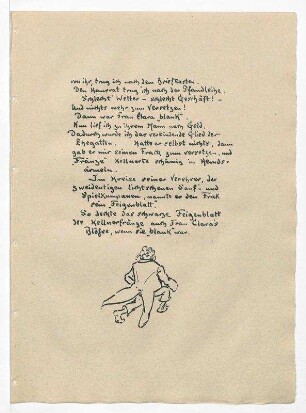 von ihr, trug ich nach dem Briefkasten.
Den Hausrat trug ich nach der Pfandleihe.
Schlecht Wetter – schlecht Geschäft! –
Und nichts mehr zum Versetzen!
Dann war Frau Clara „blank“.
Nun lief ich zu ihrem Mann nach Geld.
Dadurch wurde ich das verbindende Glied der
Ehegatten. Hatte er selbst nichts, dann
gab er mir seinen Frack zum versetzen – und
„Fränze“ kellnerte schämig in Hemds-
ärmeln.
Im Kreise seiner Verehrer, der
zweideutigen lichtscheuen Sauf- und
Spielkumpanen, nannte er den Frak
sein „Feigenblatt“.
So deckte das schwarze Feigenblatt
der Kellnerfränze auch Frau Clara's
Blöße, wenn sie „blank“ war.